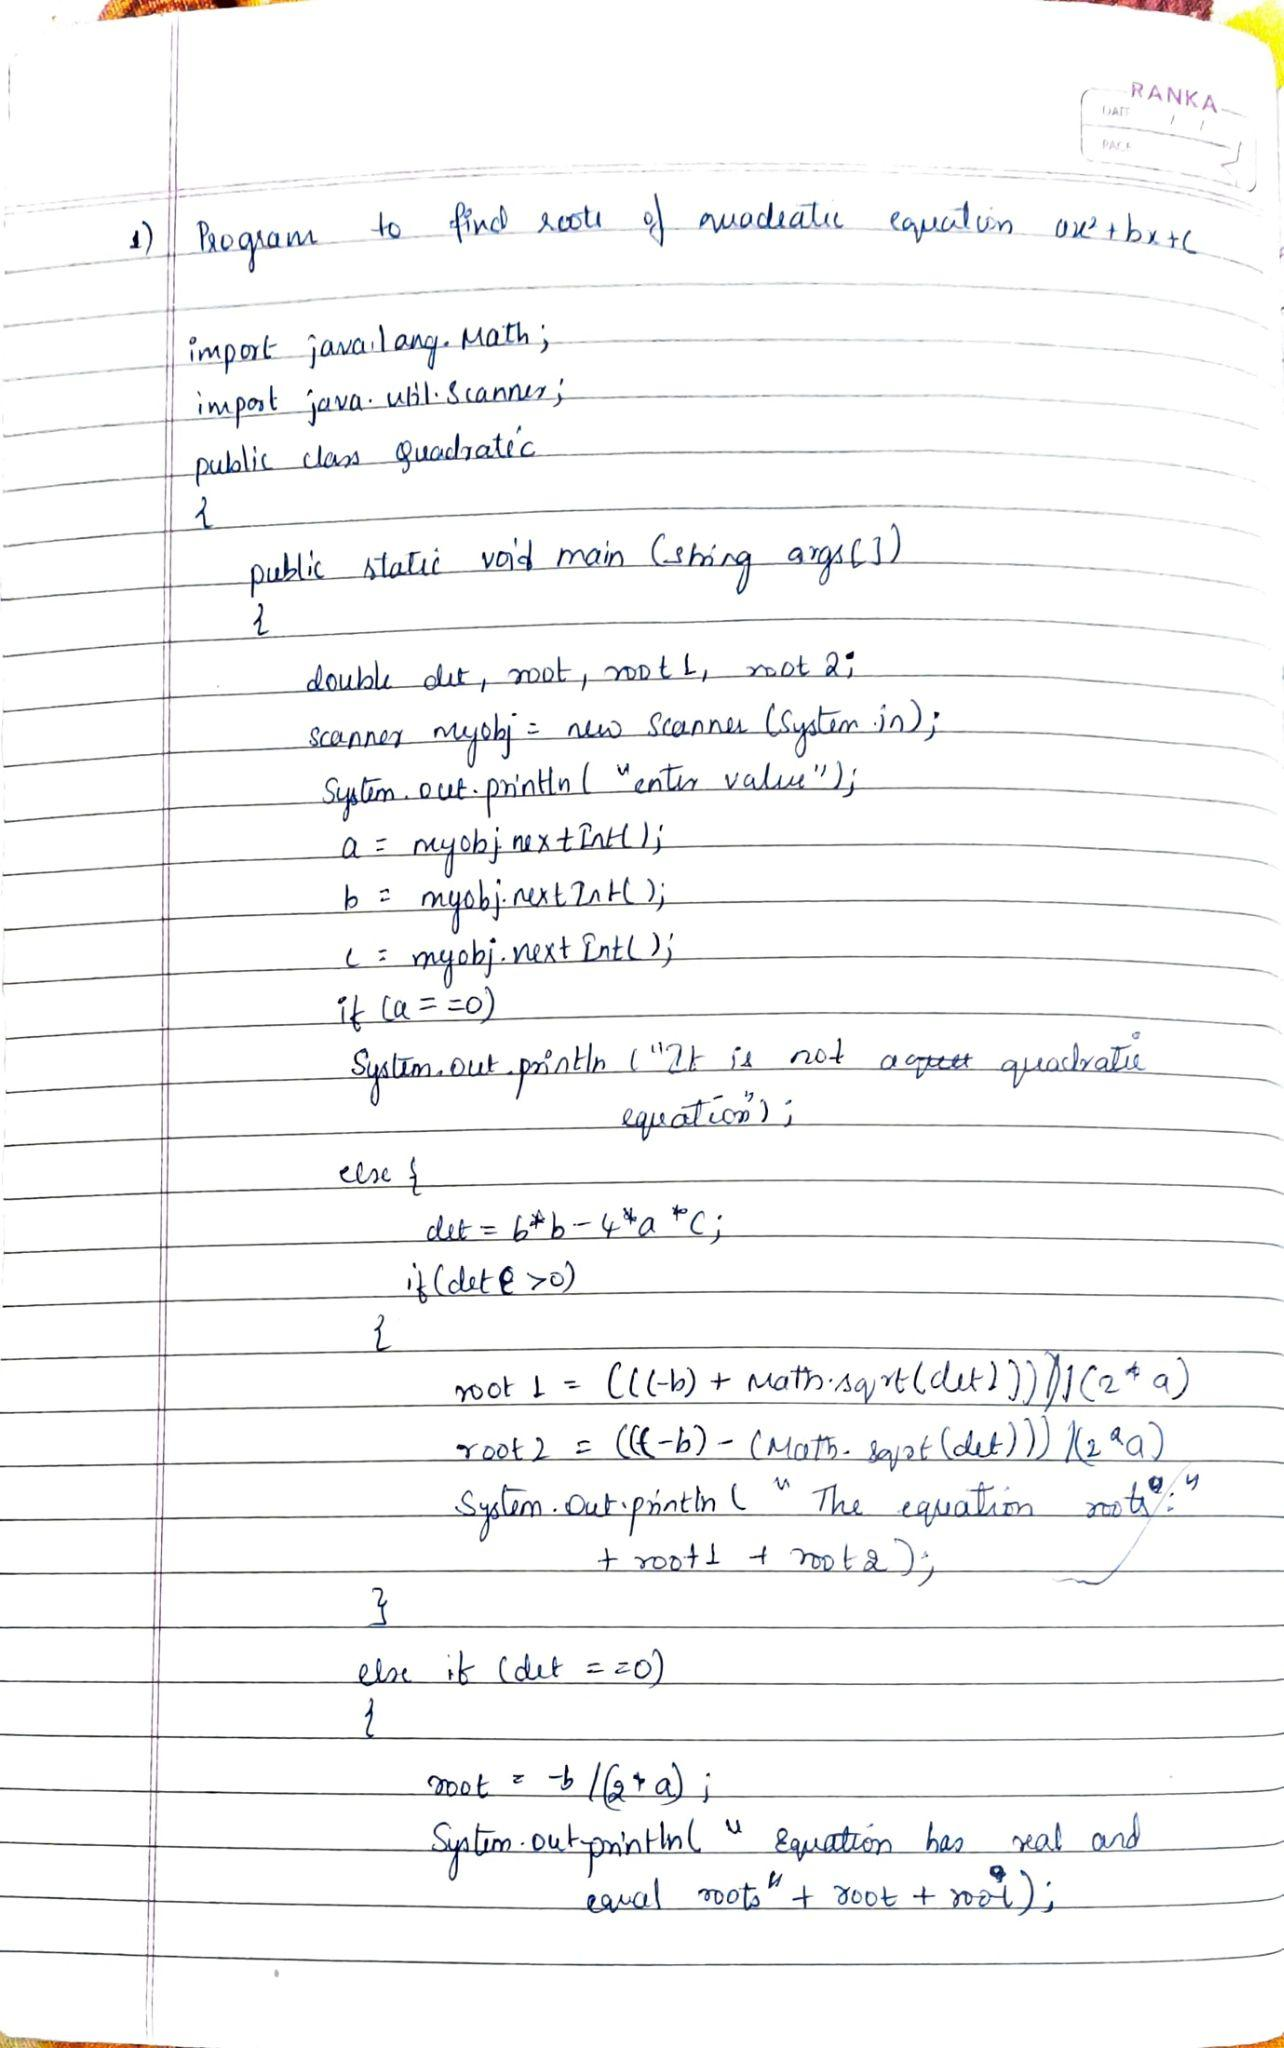 RANKA
DATE / /
PAGE
1) Program to find roots of quadratic equation ax²+bx+c
import java.lang.Math;
import java.util.Scanner;
public class Quadratic
{
public static void main (string args[])
{
double det, root, root1, root2;
scanner myobj = new Scanner (System.in);
System.out.println("enter value");
a = myobj.nextInt();
b = myobj.nextInt();
c = myobj.nextInt();
if (a==0)
System.out.println("It is not a quadratic
equation");
else {
det = b*b-4*a*c;
if(det >0)
{
root1 = (((-b) + Math.sqrt(det)))/(2*a)
root2 = ((-b) - (Math.sqrt(det)))/(2*a)
System.out.println(" The equation roots:"
+ root1 + root2);
}
else if (det ==0)
{
root = -b/(2*a);
System.out.println(" Equation has real and
equal roots" + root + root);